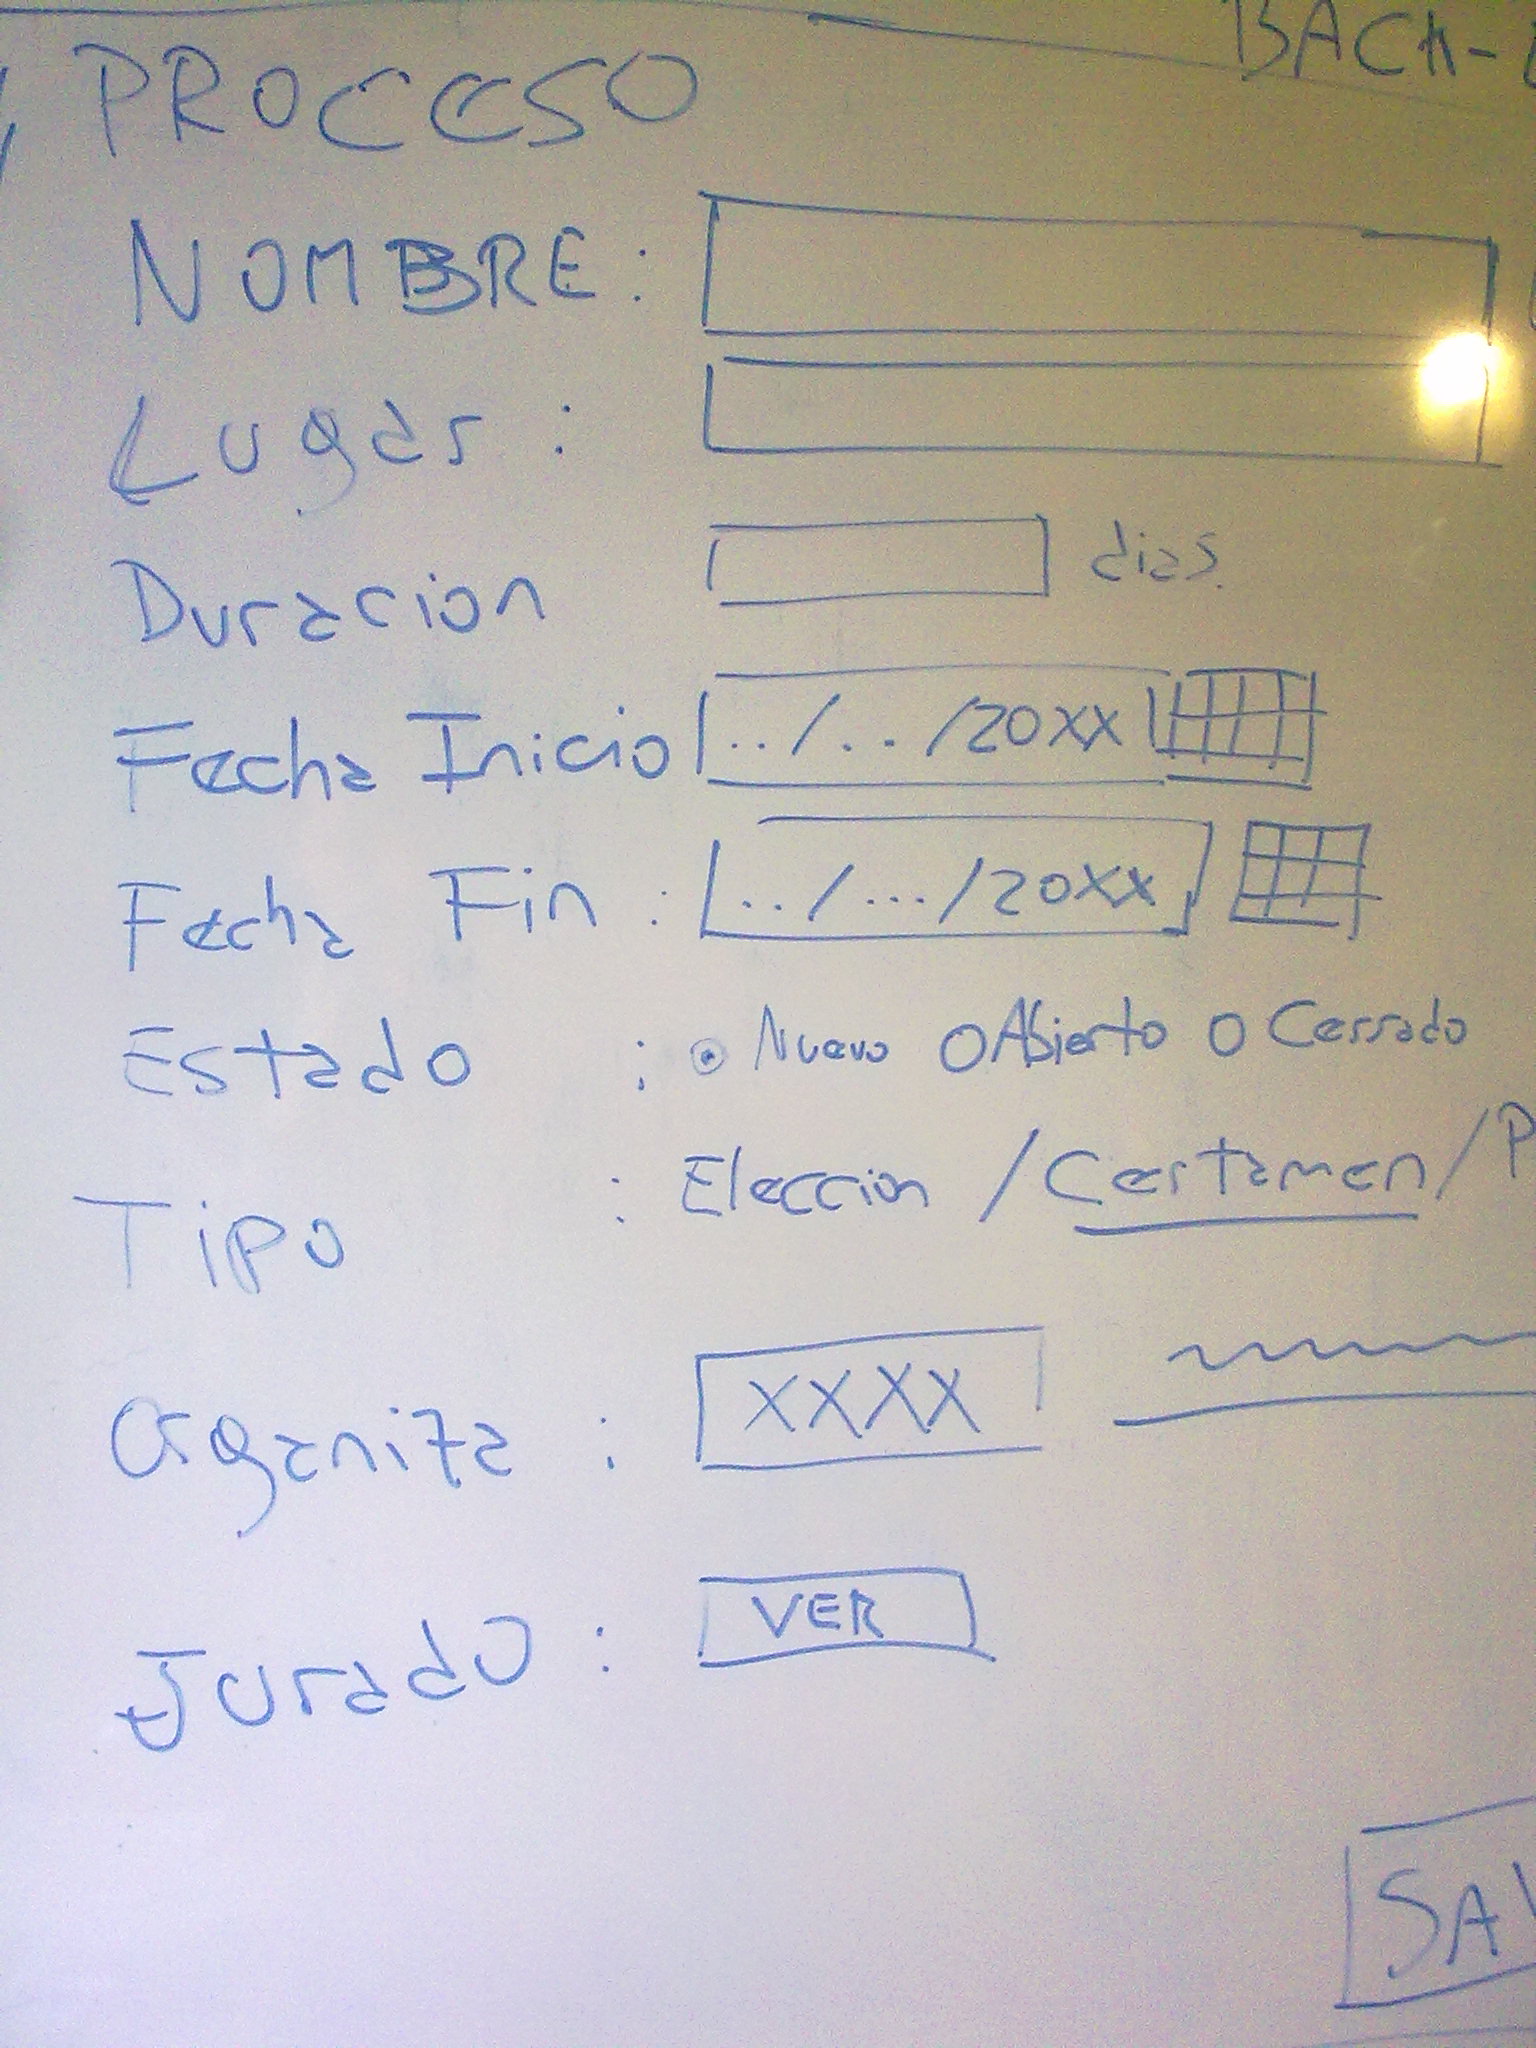 PROCESO
BACK-
NOMBRE:
Lugar :
Duracion dias.
Fecha Inicio ../../20XX
Fecha Fin : ../.../20XX
Estado : Nuevo O Abierto O Cerrado
Tipo : Eleccion / Certamen / P
Organiza : XXXX
Jurado : VER
SAV